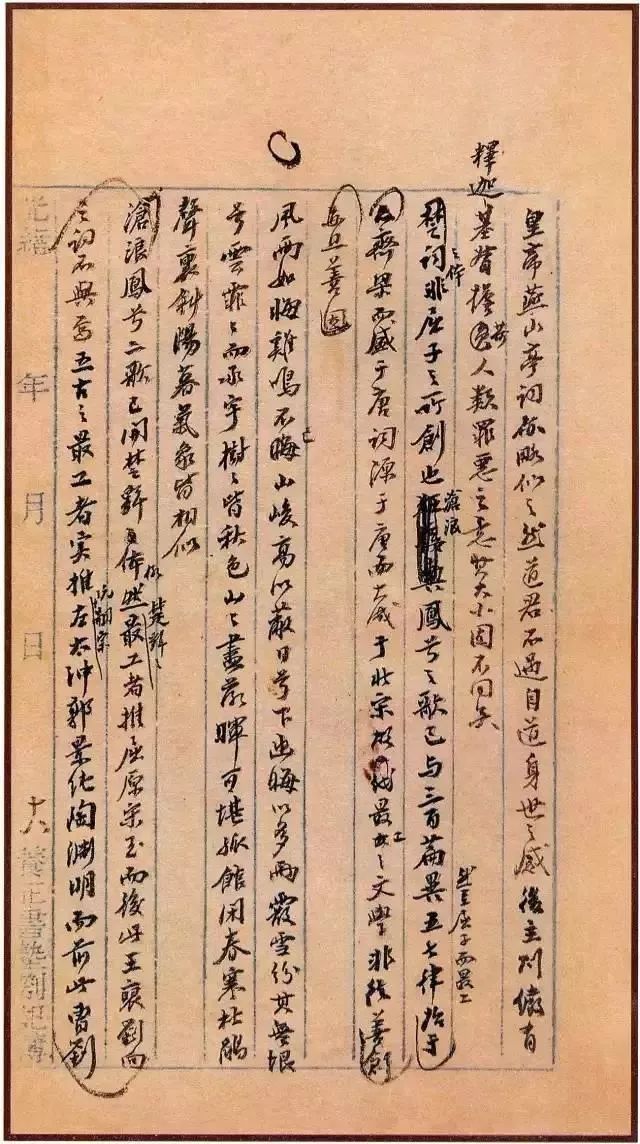 皇帝燕山亭詞亦略似之然道君不過自道身世之感後主則儼有
釋迦基督擔荷人類罪惡之意其大小固不同矣
楚詞之体非屈子之所創也滄浪鳳兮之歌已与三百篇異然至屈子而最工五七律始于
齊梁而盛于唐詞源于唐而大成于北宋故最工之文學非徒善創
亦且善因
風雨如晦雞鳴不已山峻高以蔽日兮下幽晦以多雨霰雪紛其無垠
兮雲霏〻而承宇樹〻皆秋色山〻盡落暉可堪孤館閉春寒杜鵑
聲裏斜陽暮氣象皆相似
滄浪鳳兮二歌已開楚辭体格然楚辭之最工者推屈原宋玉而後此王襃劉向
之詞不與焉五古之最工者實推阮嗣宗左太沖郭景純陶淵明而前此曹劉
光緒 年 月 日 十八 養正書塾劄記簿